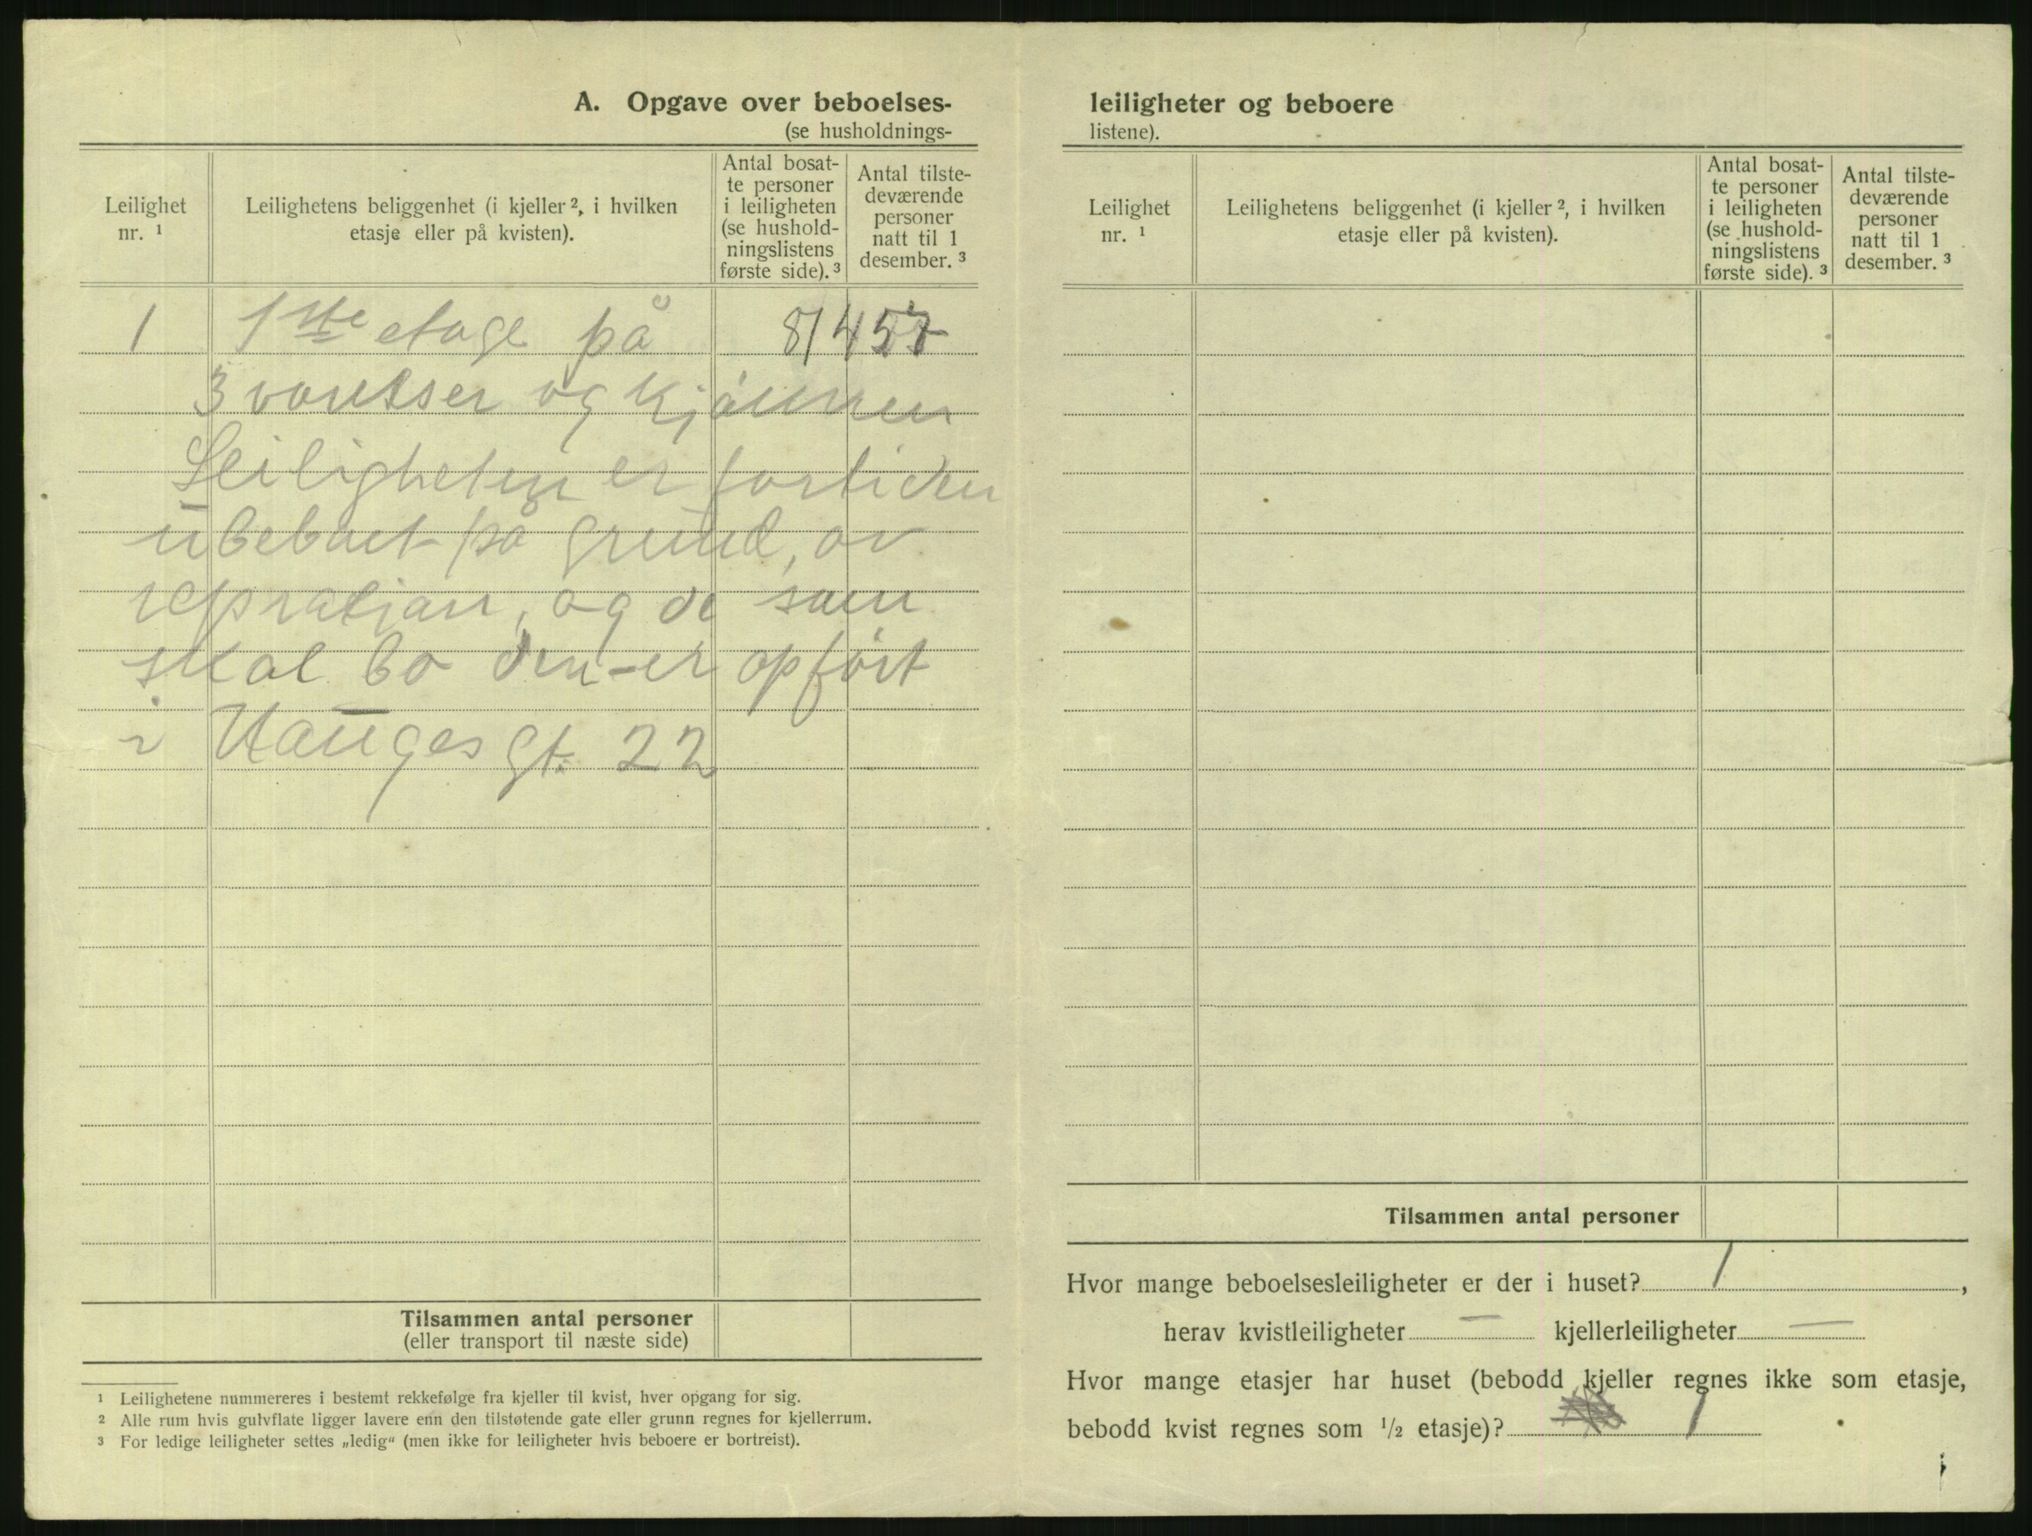 A. Opgave over beboelses-
(se husholdnings-
Leilighet
nr. ¹
Leilighetens beliggenhet (i kjeller ², i hvilken
etasje eller på kvisten).
Antal bosat-
te personer
i leiligheten
(se hushold-
ningslistens
første side). ³
Antal tilste-
deværende
personer
natt til 1
desember. ³
1 1ste etage på
3 værelser og kjøkken
Leiligheten er fortiden
ubeboet på grund, av
repration, og de som
skal bo den - er opført
i Hauges gt. 22
Tilsammen antal personer
(eller transport til næste side)
¹ Leilighetene nummereres i bestemt rekkefølge fra kjeller til kvist, hver opgang for sig.
² Alle rum hvis gulvflate ligger lavere enn den tilstøtende gate eller grunn regnes for kjellerrum.
³ For ledige leiligheter settes „ledig“ (men ikke for leiligheter hvis beboere er bortreist).
leiligheter og beboere
listene).
Leilighet
nr. ¹
Leilighetens beliggenhet (i kjeller ², i hvilken
etasje eller på kvisten).
Antal bosat-
te personer
i leiligheten
(se hushold-
ningslistens
første side). ³
Antal tilste-
deværende
personer
natt til 1
desember. ³
Tilsammen antal personer
Hvor mange beboelsesleiligheter er der i huset? 1,
herav kvistleiligheter — kjellerleiligheter —
Hvor mange etasjer har huset (bebodd kjeller regnes ikke som etasje,
bebodd kvist regnes som ½ etasje)? 1